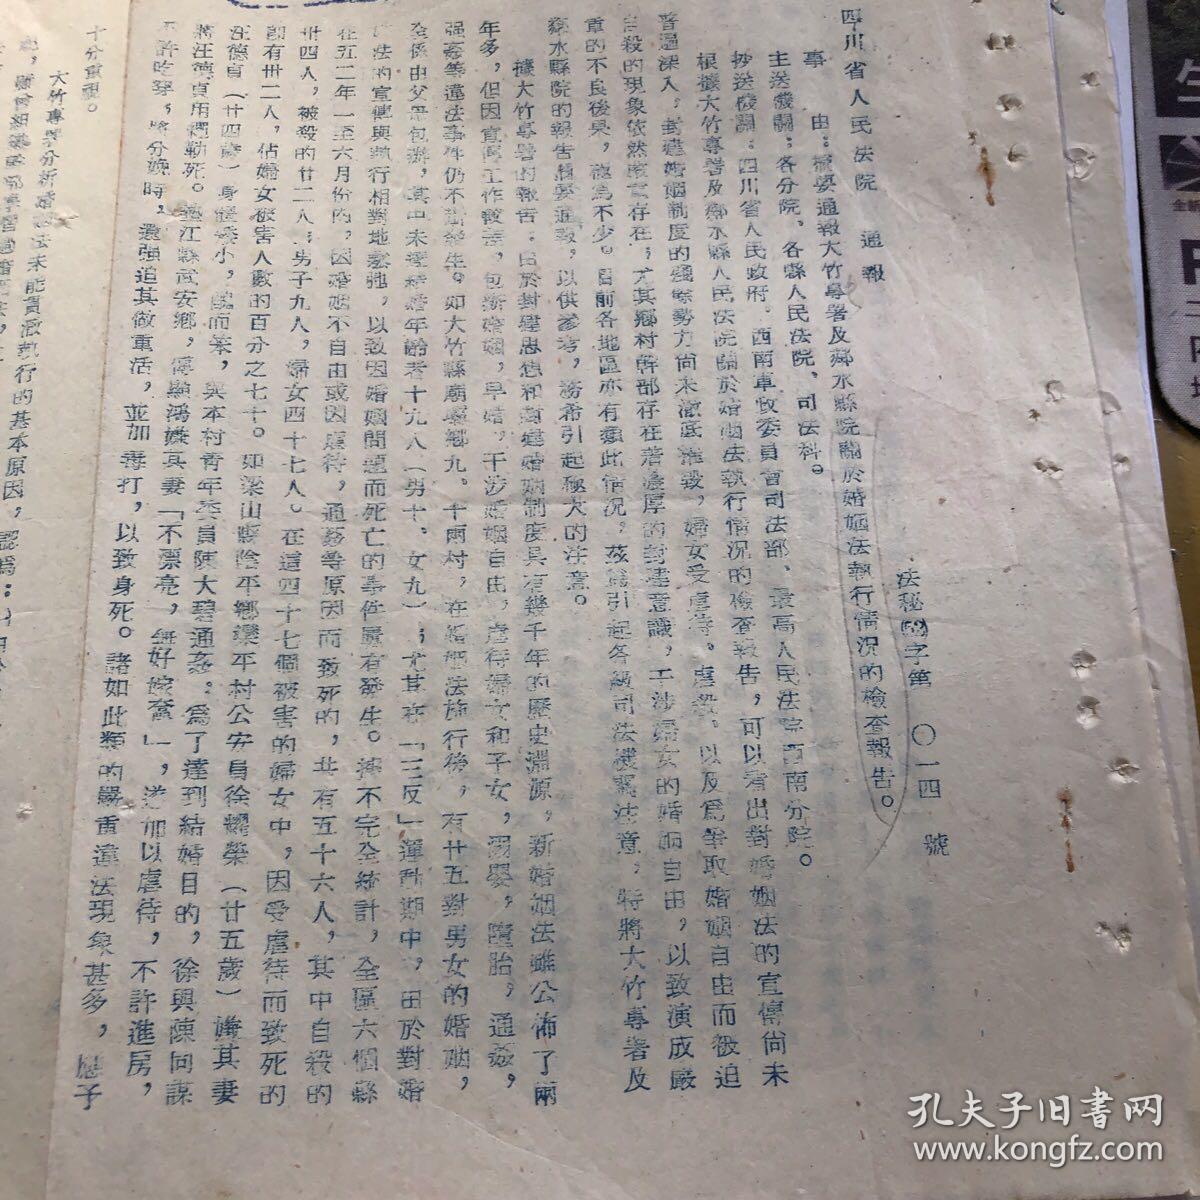 四川省人民法院 通報
法秘52字第〇一四號
事 由：擇要通報大竹專署及鄰水縣院關於婚姻法執行情況的檢查報告。
主送機關：各分院，各縣人民法院，司法科。
抄送機關：四川省人民政府，西南軍政委員會司法部，最高人民法院西南分院。
根據大竹專署及鄰水縣人民法院關於婚姻法執行情況的檢查報告，可以看出對婚姻法的宣傳尚未
普遍深入，封建婚姻制度的殘餘勢力尚未澈底摧毀，婦女受虐待。虐殺，以及爲爭取婚姻自由而被迫
自殺的現象依然嚴重存在；尤其鄉村幹部存在着濃厚的封建意識，干涉婦女的婚姻自由，以致演成嚴
重的不良後果，極爲不少。目前各地區亦有類此情況，茲爲引起各級司法機關注意，特將大竹專署及
鄰水縣院的報告摘要通報，以供參考，務希引起極大的注意。
據大竹專署的報告：由於封建思想和封建婚姻制度具有幾千年的歷史淵源，新婚姻法雖公佈了兩
年多，但因宣傳工作較差，包辦婚姻，早婚，干涉婚姻自由，虐待婦女和子女，溺嬰，墮胎，通姦，
强姦等違法事件仍不斷發生。如大竹縣廟壩鄉九、十兩村，在婚姻法施行後，有廿五對男女的婚姻，
全係由父母包辦，其中未達結婚年齡者十九人（男十、女九）；尤其在「三反」運動期中，由於對婚
姻法的宣傳與執行相對地鬆弛，以致因婚姻問題而死亡的事件屢有發生。據不完全統計，全區六個縣
在五二年一至六月份內，因婚姻不自由或因虐待，通姦等原因而致死的，共有五十六人，其中自殺的
卅四人，被殺的廿二人；男子九人，婦女四十七人。在這四十七個被害的婦女中，因受虐待而致死的
卽有卅二人，佔婦女被害人數的百分之七十。如梁山縣陰平鄉樂平村公安員徐耀榮（廿五歲）嫌其妻
汪德貞（廿四歲）身體矮小，醜而笨，與本村青年委員陳大碧通姦。爲了達到結婚目的，徐與陳同謀
將汪德貞用繩勒死。墊江縣武安鄉，傅顯鴻嫌其妻「不漂亮，無好嫁奩」，遂加以虐待，不許進房，
不許吃穿，臨分娩時，還強迫其做重活，並加毒打，以致身死。諸如此類的嚴重違法現象甚多，應予
十分重視。
大竹專署分析婚姻法未能貫澈執行的基本原因，認爲：
孔夫子旧書网
www.kongfz.com